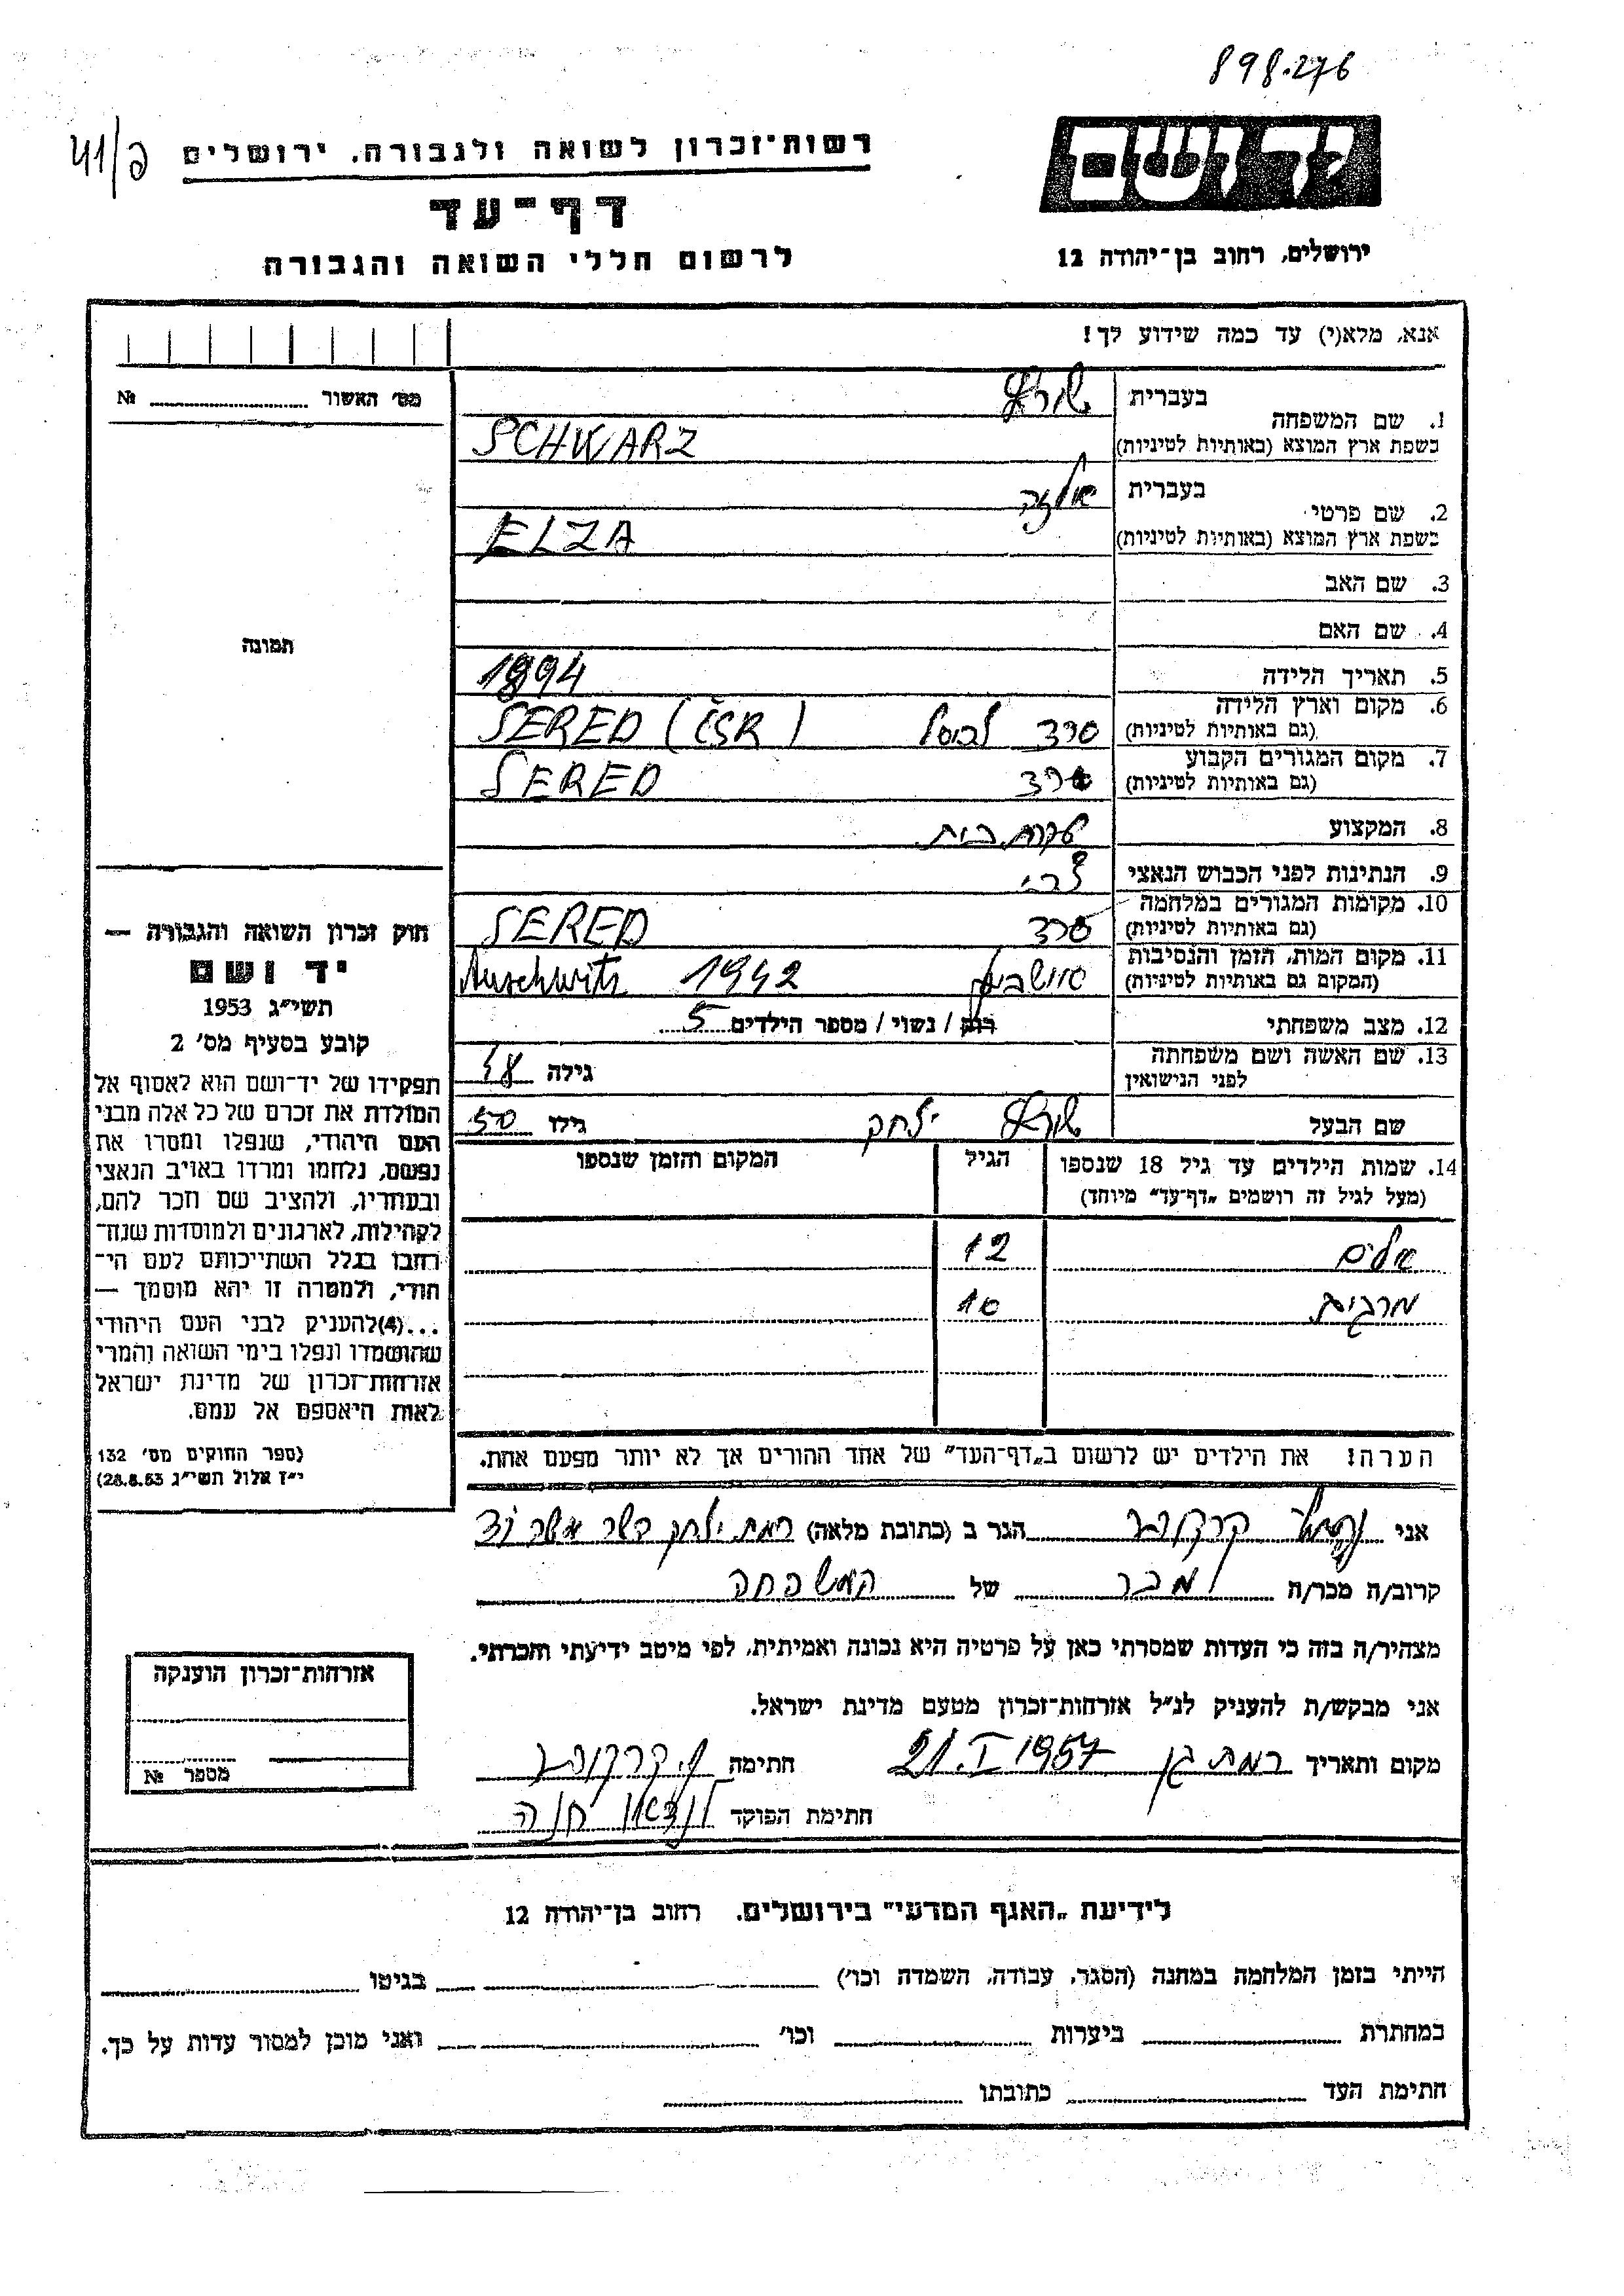 898.276
יד ושם
רשות־זכרון לשואה ולגבורה, ירושלים
41/פ
דף־עד
ירושלים, רחוב בן־יהודה 12
לרשום חללי השואה והגבורה
אנא, מלא(י) עד כמה שידוע לך!
מס' האשור № 
1. שם המשפחה
בעברית שורץ
בשפת ארץ המוצא (באותיות לטיניות) SCHWARZ
2. שם פרטי
בעברית אלזה
בשפת ארץ המוצא (באותיות לטיניות) ELZA
3. שם האב
4. שם האם
תמונה
5. תאריך הלידה 1894
6. מקום וארץ הלידה
(גם באותיות לטיניות) סרד SERED (ČSR)
7. מקום המגורים הקבוע
(גם באותיות לטיניות) סרד SERED
8. המקצוע עקרת בית
9. הנתינות לפני הכבוש הנאצי
10. מקומות המגורים במלחמה
(גם באותיות לטיניות) סרד SERED
11. מקום המות, הזמן והנסיבות
(המקום גם באותיות לטיניות) 1942 Auschwits
12. מצב משפחתי רוק / נשוי / מספר הילדים 5
13. שם האשה ושם משפחתה
לפני הנישואין גילה 48
שם הבעל שורץ יצחק גילו 50
14. שמות הילדים עד גיל 18 שנספו
(מעל לגיל זה רושמים „דף־עד” מיוחד)
הגיל
המקום והזמן שנספו
12
מרגית 10
הערה! את הילדים יש לרשום ב„דף־העד” של אחד ההורים אך לא יותר מפעם אחת.
חוק זכרון השואה והגבורה —
יד ושם
תשי״ג 1953
קובע בסעיף מס' 2
תפקידו של יד־ושם הוא לאסוף אל
המולדת את זכרם של כל אלה מבני
העם היהודי, שנפלו ומסרו את
נפשם, נלחמו ומרדו באויב הנאצי
ובעוזריו, ולהציב שם וזכר להם,
לקהילות, לארגונים ולמוסדות שנח־
רבו בגלל השתייכותם לעם הי־
הודי, ולמטרה זו יהא מוסמך —
...(4)להעניק לבני העם היהודי
שהושמדו ונפלו בימי השואה והמרי
אזרחות־זכרון של מדינת ישראל
לאות היאספם אל עמם.
(ספר החוקים מס' 132
י״ז אלול תשי״ג 28.8.53)
אני הגר ב (כתובת מלאה) רמת יצחק
קרוב/ה מכר/ה מכר של המשפחה
מצהיר/ה בזה כי העדות שמסרתי כאן על פרטיה היא נכונה ואמיתית, לפי מיטב ידיעתי והכרתי.
אני מבקש/ת להעניק לנ״ל אזרחות־זכרון מטעם מדינת ישראל.
מקום ותאריך רמת גן 21.I 1957 חתימה
חתימת הפוקד חנה
אזרחות־זכרון הוענקה
מספר №
לידיעת „האגף המדעי” בירושלים. רחוב בן־יהודה 12
הייתי בזמן המלחמה במחנה (הסגר, עבודה, השמדה וכו') בגיטו
במחתרת ביערות וכו' ואני מוכן למסור עדות על כך.
חתימת העד כתובתו